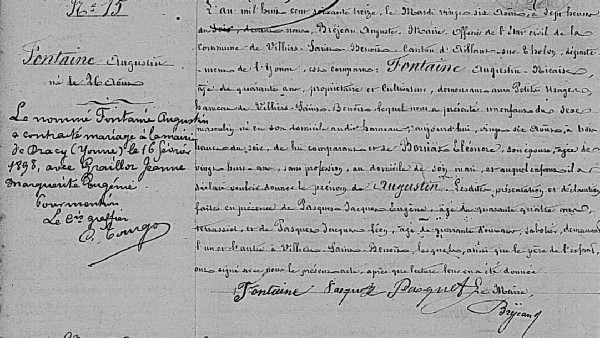 N° 15
Fontaine Augustin
né le 26 Août
Le nommé Fontaine Augustin
a contracté mariage à la mairie
de Dracy (Yonne) le 16 février
1898, avec Graillot Jeanne
Marguerite Eugénie
Le Cis greffier
L'an mil huit cent soixante treize, le Mardi vingt six Août, à sept heures
du soir, devant nous, Bréjean Auguste, Maire, Officier de l'État civil de la
Commune de Villiers-Saint-Benoît, Canton d'Aillant-sur-Tholon, départe-
ment de l'Yonne, est comparu: Fontaine Augustin-Nicaise,
âgé de quarante ans, propriétaire et cultivateur, demeurant aux Petits
hameau de Villiers-Saint-Benoît, lequel nous a présenté un enfant du sexe
masculin né en son domicile audit hameau, aujourd'hui, vingt six Août, à
heures du soir, de lui comparant et de Éléonore, son épouse, âgée de
vingt huit ans, sans profession, au domicile de son mari, et auquel enfant il a
déclaré vouloir donner le prénom de Augustin. Lesdites présentation et déclaration
faites en présence de Pasquet Jacques Eugène, âgé de quarante quatre ans,
terrassier, et de Pasquet Jacques âgé de quarante ans, sabotier, demeurant
l'un et l'autre à Villiers-Saint-Benoît, lesquels, ainsi que le père de l'enfant,
ont signé avec nous le présent acte, après que lecture leur en a été donnée.
Fontaine Pasquet Pasquet Le Maire,
Bréjean